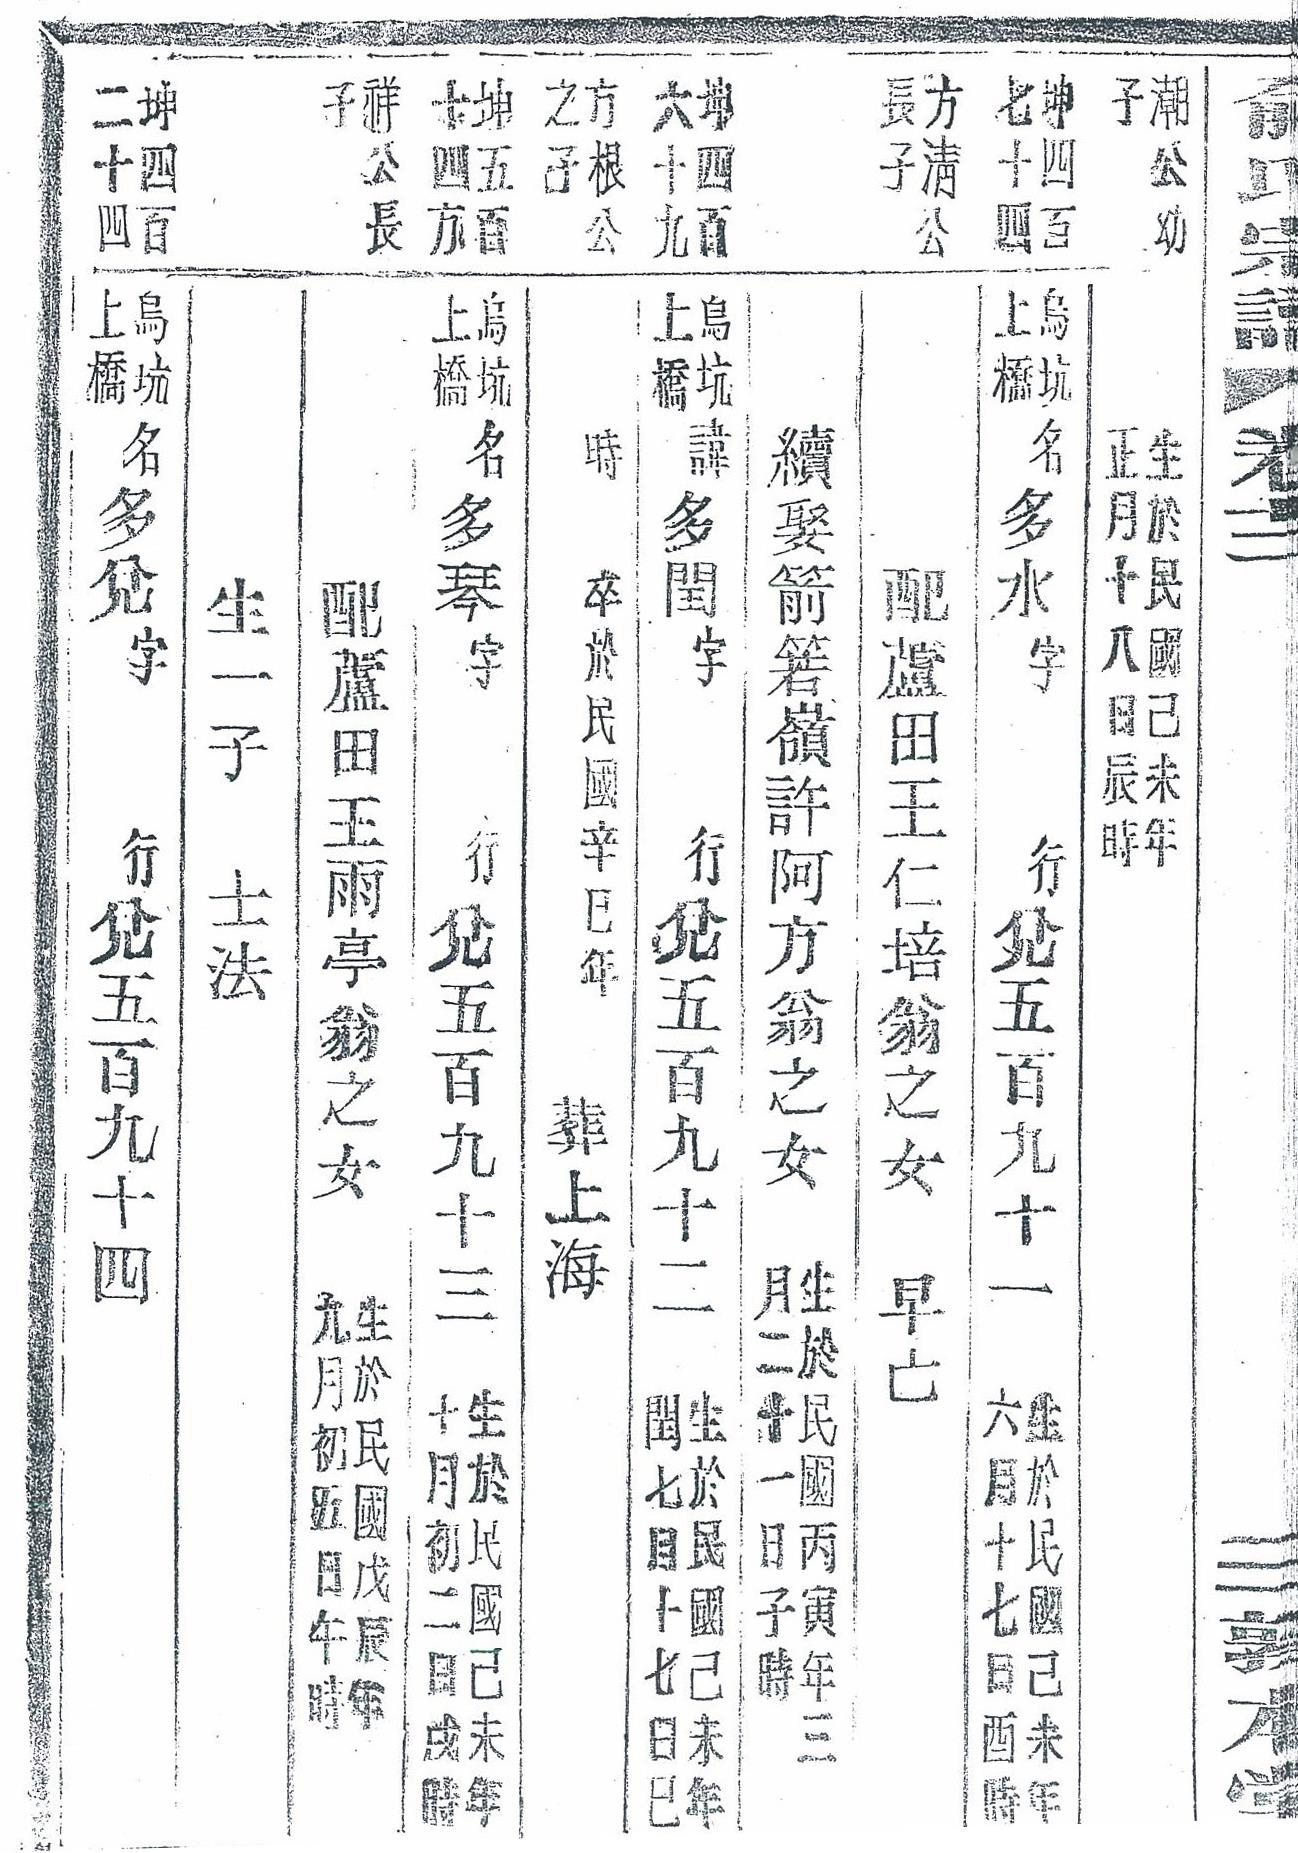 俞氏宗譜 卷三 三 敦本堂
潮公幼
子
生於民國己未年
正月十八日辰時
坤四百
七十四
烏坑
上橋
名多水字 行兊五百九十一
生於民國己未年
六月十七日酉時
方清公
長子
配蘆田王仁培翁之女 早亡
續娶箭箬嶺許阿方翁之女
生於民國丙寅年三
月二十一日子時
坤四百
六十九
烏坑
上橋
諱多閏字 行兊五百九十二
生於民國己未年
閏七月十七日巳
方根公
之子
時 卒於民國辛巳年 葬上海
坤五百
十四方
烏坑
上橋
名多琴字 行兊五百九十三
生於民國己未年
十月初二日戌時
祥公長
子
配蘆田王雨亭翁之女
生於民國戊辰年
九月初五日午時
生一子 士法
坤四百
二十四
烏坑
上橋
名多兊字 行兊五百九十四